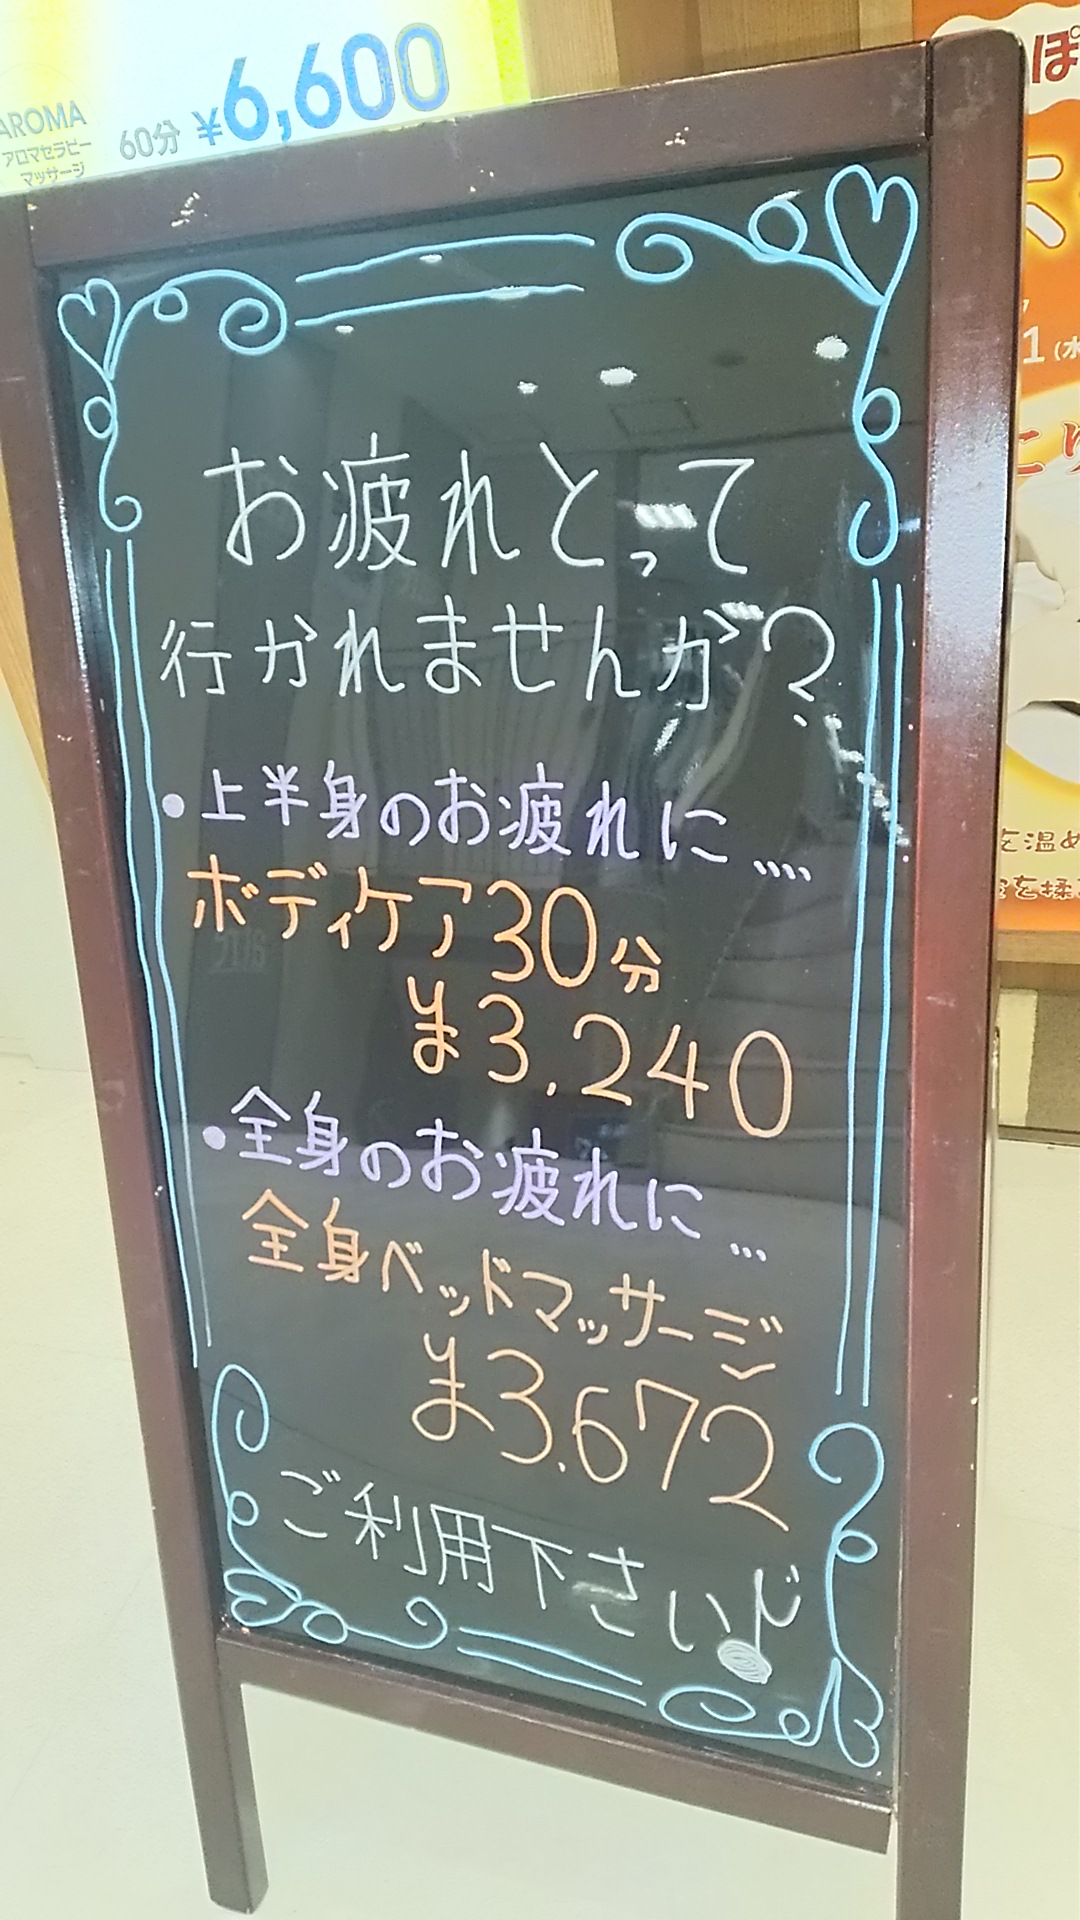 AROMA
アロマセラピー
マッサージ
60分 ¥6,600
お疲れとって
行かれませんか?
・上半身のお疲れに....
ボディケア30分
¥3.240
・全身のお疲れに...
全身ベッドマッサージ
¥3.672
ご利用下さい♪
ぽ
1(水
こり
を温め
を揉